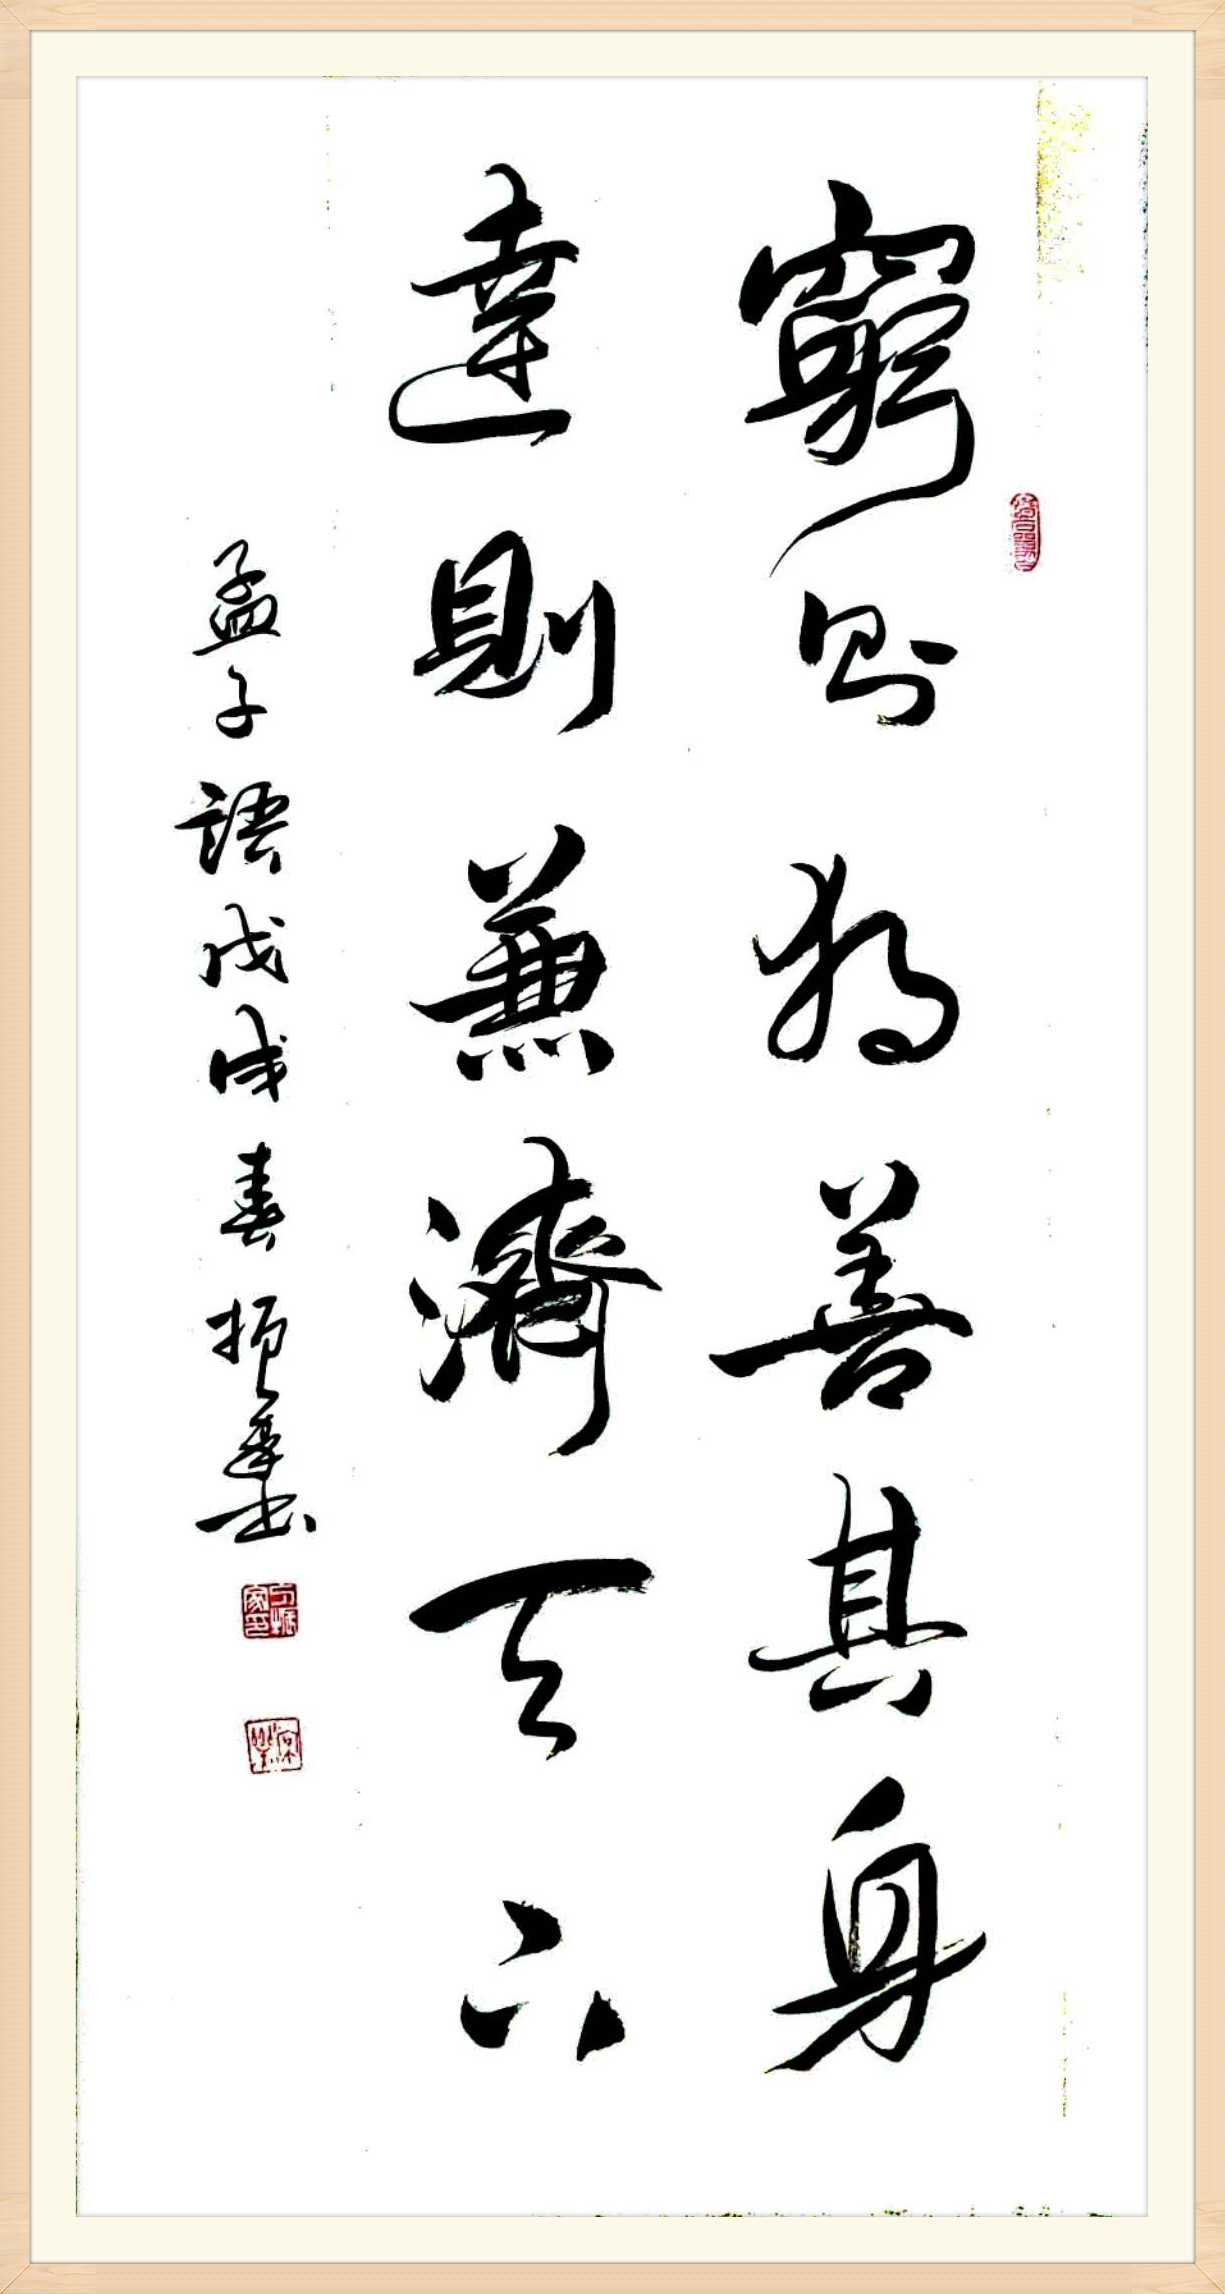 窮則獨善其身
達則兼濟天下
孟子語戊戌春振家書